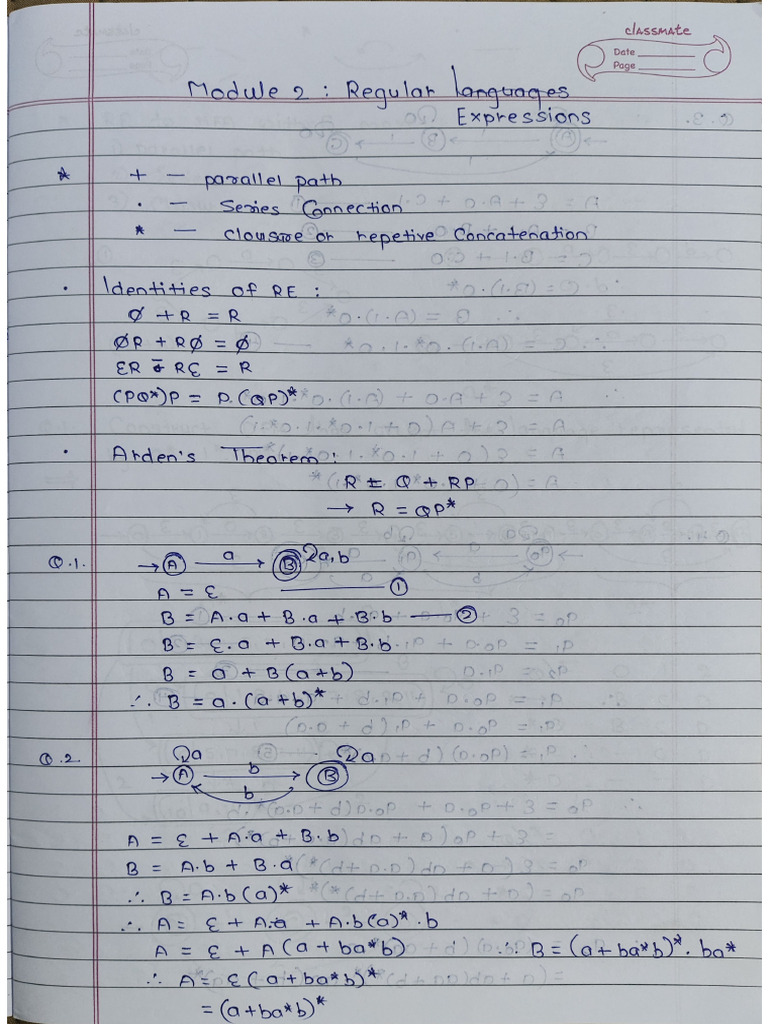 classmate
Date
Page
Module 2 : Regular languages
Expressions
* + — parallel path
· — Series Connection
* — clousre or repetive Concatenation
· Identities of RE :
∅ + R = R
∅R + R∅ = ∅
εR = Rε = R
(PQ*)P = P.(QP)*
· Arden's Theorem :
R = Q + RP
→ R = QP*
Q.1. → A a B a,b
A = ε ——— ①
B = A·a + B·a + B·b —— ②
B = ε.a + B·a + B·b
B = a + B(a+b)
∴ B = a.(a+b)*
Q.2. a a
→ A b B
b
A = ε + A·a + B·b
B = A·b + B·a
∴ B = A·b(a)*
∴ A = ε + A.a + A·b(a)*·b
A = ε + A(a + ba*b) ∴ B = (a + ba*b)*. ba*
∴ A = ε(a + ba*b)*
= (a+ba*b)*